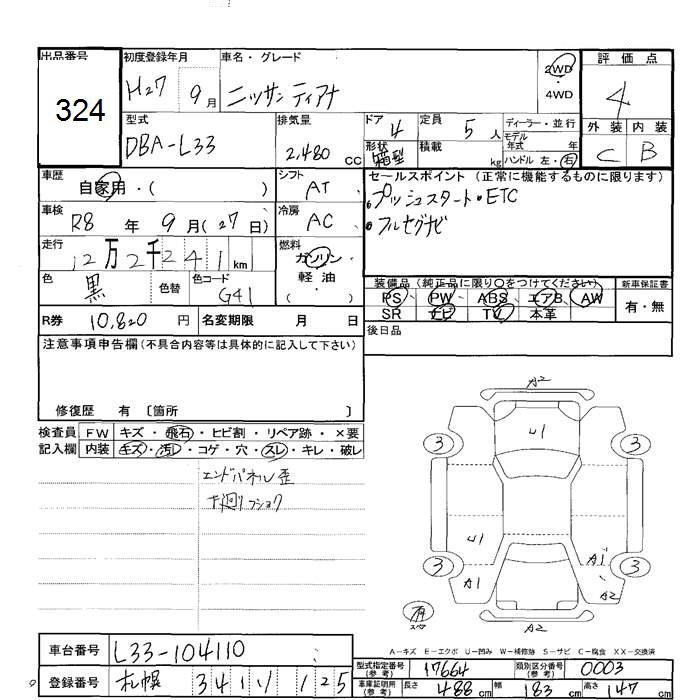 出品番号 初度登録年月 車名・グレード 評価点
324 H27 9月 ニッサン ティアナ 2WD・4WD 4
型式 排気量 ドア 定員 ディーラー・並行 外装 内装
DBA-L33 2,480cc 4 5人 モデル年式 年 C B
形状 箱型 積載 kg ハンドル 左・右
車歴 自家用・( ) シフト AT セールスポイント (正常に機能するものに限ります)
車検 R8年 9月(27日) 冷房 AC ・プッシュスタート・ETC
・フルセグナビ
走行 12万2千241km 燃料 ガソリン・軽油・( )
色 黒 色替 色コード G41
装備品(純正品に限り○をつけてください) 新車保証書
PS PW ABS エアB AW 有・無
SR ナビ TV 本革
R券 10,820円 名変期限 月 日 後日品
注意事項申告欄(不具合内容等は具体的に記入して下さい)
修復歴 有 〔箇所 〕
検査員 FW キズ・飛石・ヒビ割・リペア跡・×要
記入欄 内装 キズ・汚レ・コゲ・穴・スレ・キレ・破レ
エンドパネル歪
下廻りフショク
A2
U1
3 3
U1 A1
3 3
A1 A2
有 スペア
A2
A-キズ E-エクボ U-凹み W-補修跡 S-サビ C-腐食 XX-交換済
車台番号 L33-104110
登録番号 札幌 341 リ 125
型式指定番号(参考) 17664 類別区分番号(参考) 0003
車庫証明用(参考) 長さ 488cm 幅 183cm 高さ 147cm